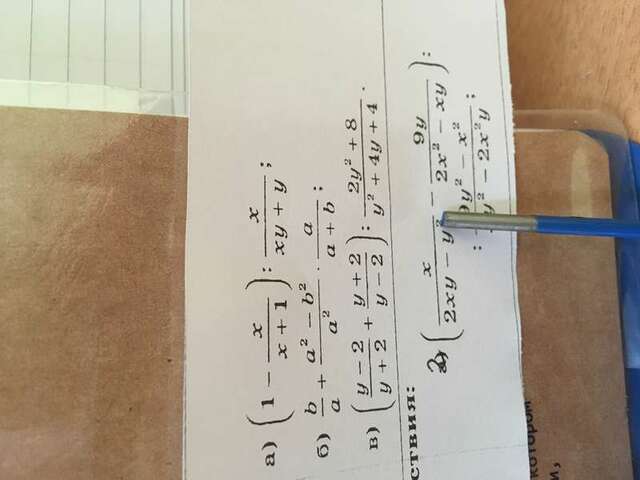 а) (1 − x/(x + 1)) : x/(xy + y) ;
б) b/a + (a² − b²)/a² · a/(a + b) :
в) ((y − 2)/(y + 2) + (y + 2)/(y − 2)) : (2y² + 8)/(y² + 4y + 4) .
ствия:
(x/(2xy − y²) − 9y/(2x² − xy)) :
: (9y² − x²)/(y² − 2x²y) ;
котором
и,